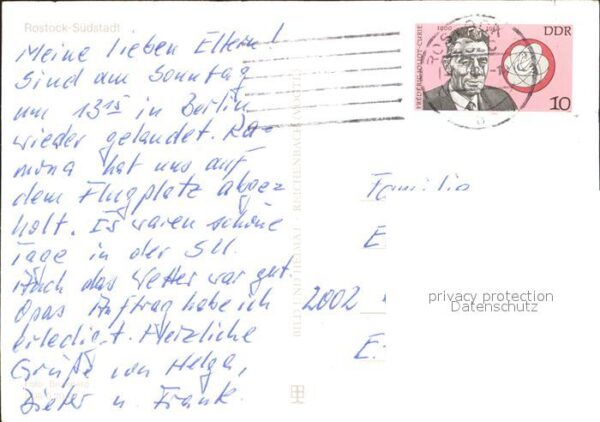 Rostock-Südstadt
Meine lieben Eltern!
Sind am Sonntag
um 13¹⁵ in Berlin
wieder gelandet. Ra-
mona hat uns auf
dem Flugplatz abge-
holt. Es waren schöne
Tage in der SU.
Auch das Wetter war gut.
Opas Auftrag habe ich
erledigt. Herzliche
Grüße von Helga,
Dieter u. Frank.
BILD UND HEIMAT REICHENBACH (VOGTL)
FRÉDÉRIC JOLIOT-CURIE
1900
DDR
10
ROSTOCK
Familie
E
2002
E
privacy protection
Datenschutz